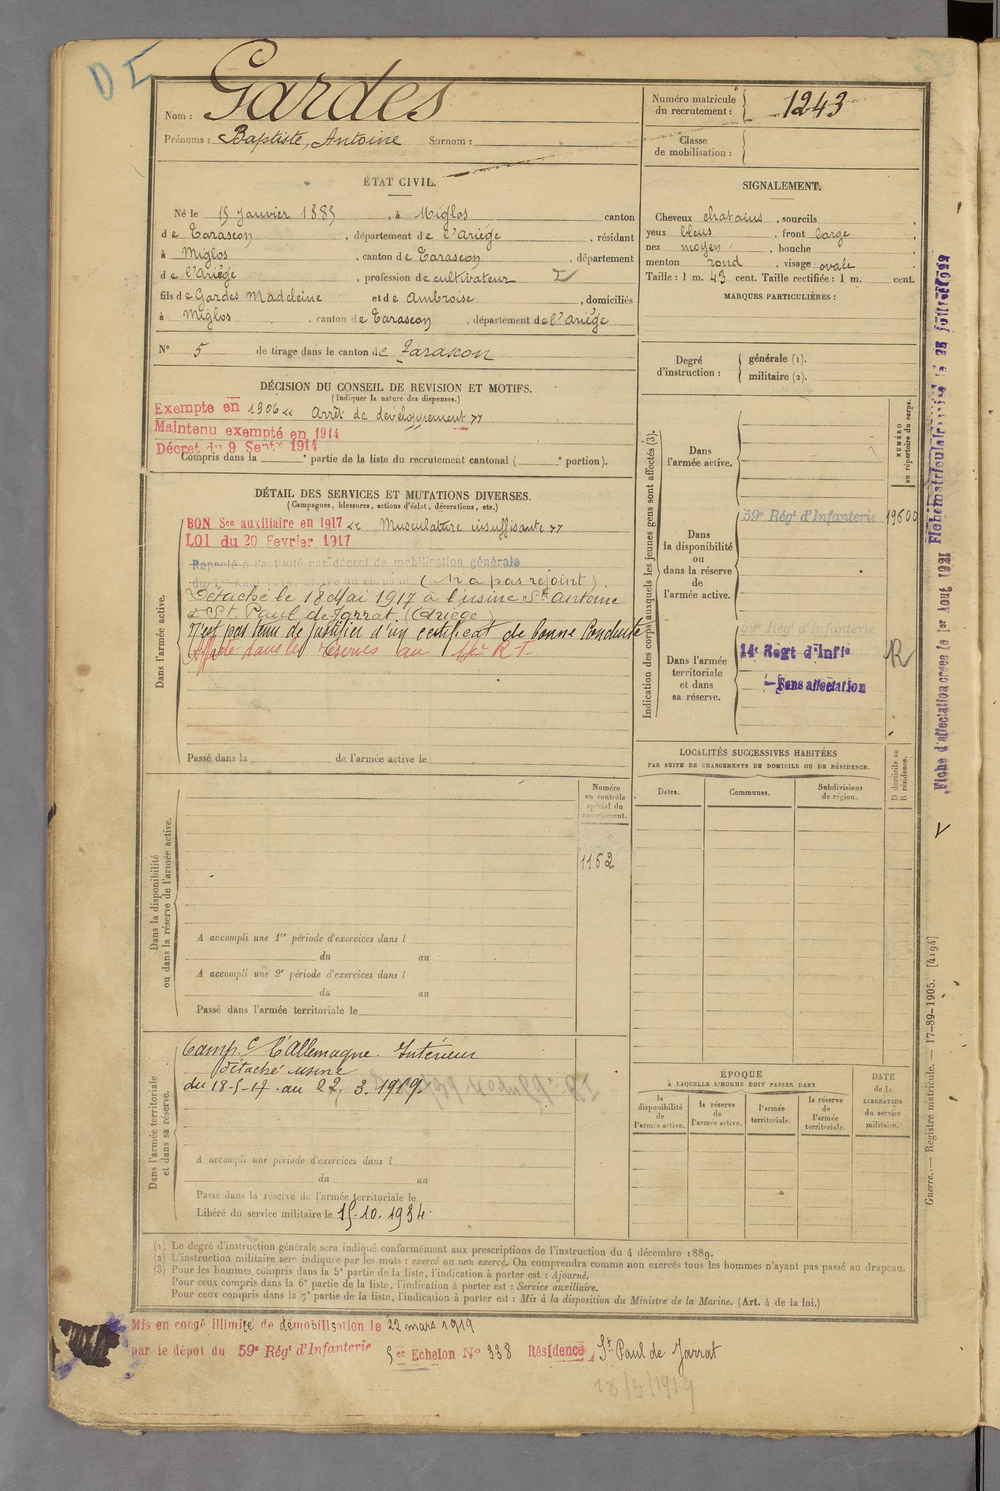 D I
Nom : Gardes
Prénoms : Baptiste, Antoine Surnom :
Numéro matricule du recrutement : 1243
Classe de mobilisation :
ÉTAT CIVIL.
Né le 15 Janvier 1885, à Miglos canton
de Tarascon, département de l'Ariège, résidant
à Miglos, canton de Tarascon, département
de l'Ariège, profession de cultivateur
fils de Gardes Madeleine et de Ambroise, domiciliés
à Miglos, canton de Tarascon, département de l'Ariège
N° 5 de tirage dans le canton de Tarascon
SIGNALEMENT.
Cheveux chatains, sourcils
yeux bleus, front large
nez moyen, bouche
menton rond, visage ovale
Taille : 1 m. 43 cent. Taille rectifiée : 1 m. cent.
MARQUES PARTICULIÈRES :
Degré d'instruction : générale (1).
militaire (2).
DÉCISION DU CONSEIL DE REVISION ET MOTIFS.
(Indiquer la nature des dispenses.)
Exempté en 1906 « Arrêt de développement »
Maintenu exempté en 1914
Décret du 9 Septre 1914
Compris dans la ° partie de la liste du recrutement cantonal ( ° portion).
DÉTAIL DES SERVICES ET MUTATIONS DIVERSES.
(Campagnes, blessures, actions d'éclat, décorations, etc.)
Dans l'armée active.
BON Sce auxiliaire en 1917 « Musculature insuffisante »
LOI du 20 Fevrier 1917
Rappelé à l'activité par décret de mobilisation générale
(N'a pas rejoint)
Détaché le 18 Mai 1917 à l'usine St Antoine
à St Paul de Jarrat (Ariège
N'est pas tenu de justifier d'un certificat de bonne conduite
Affecté dans les réserves au 14e R I.
Passé dans la de l'armée active le
Indication des corps auxquels les jeunes gens sont affectés (3).
NUMÉRO au répertoire du corps.
Dans l'armée active.
Dans la disponibilité ou dans la réserve de l'armée active.
59e Régt d'Infanterie 19600
Dans l'armée territoriale et dans sa réserve.
59e Régt d'Infanterie
14e Regt d'Infie R
Sans affectation
LOCALITÉS SUCCESSIVES HABITÉES
PAR SUITE DE CHANGEMENTS DE DOMICILE OU DE RÉSIDENCE.
Dates. Communes. Subdivisions de région.
D domicile ou R résidence.
Dans la disponibilité ou dans la réserve de l'armée active.
Numéro au contrôle spécial du recrutement.
1162
A accompli une 1re période d'exercices dans l
du au
A accompli une 2e période d'exercices dans l
du au
Passé dans l'armée territoriale le
Dans l'armée territoriale et dans sa réserve.
Camp. C/ l'Allemagne. Intérieur
détaché usine
du 18-5-17 au 22, 3. 1919
A accompli une période d'exercices dans l
du au
Passé dans la réserve de l'armée territoriale le
Libéré du service militaire le 15.10.1934.
ÉPOQUE
À LAQUELLE L'HOMME DOIT PASSER DANS
la disponibilité de l'armée active.
la réserve de l'armée active.
l'armée territoriale.
la réserve de l'armée territoriale.
DATE de la LIBÉRATION du service militaire.
(1) Le degré d'instruction générale sera indiqué conformément aux prescriptions de l'instruction du 4 décembre 1889.
(2) L'instruction militaire sera indiquée par les mots : exercé ou non exercé. On comprendra comme non exercés tous les hommes n'ayant pas passé au drapeau.
(3) Pour les hommes compris dans la 5e partie de la liste, l'indication à porter est : Ajourné.
Pour ceux compris dans la 6e partie de la liste, l'indication à porter est : Service auxiliaire.
Pour ceux compris dans la 7e partie de la liste, l'indication à porter est : Mis à la disposition du Ministre de la Marine. (Art. 4 de la loi.)
Mis en congé illimité de démobilisation le 22 mars 1919
par le dépot du 59e Régt d'Infanterie 5er Echelon No 338 Résidence St Paul de Jarrat
18/3/1919
Fiche d'affectation créée le 1er Aout 1921 Fiche matriculaire le 25 juillet 1922
Guerre. — Registre matricule. — 17-89-1905. [4194]